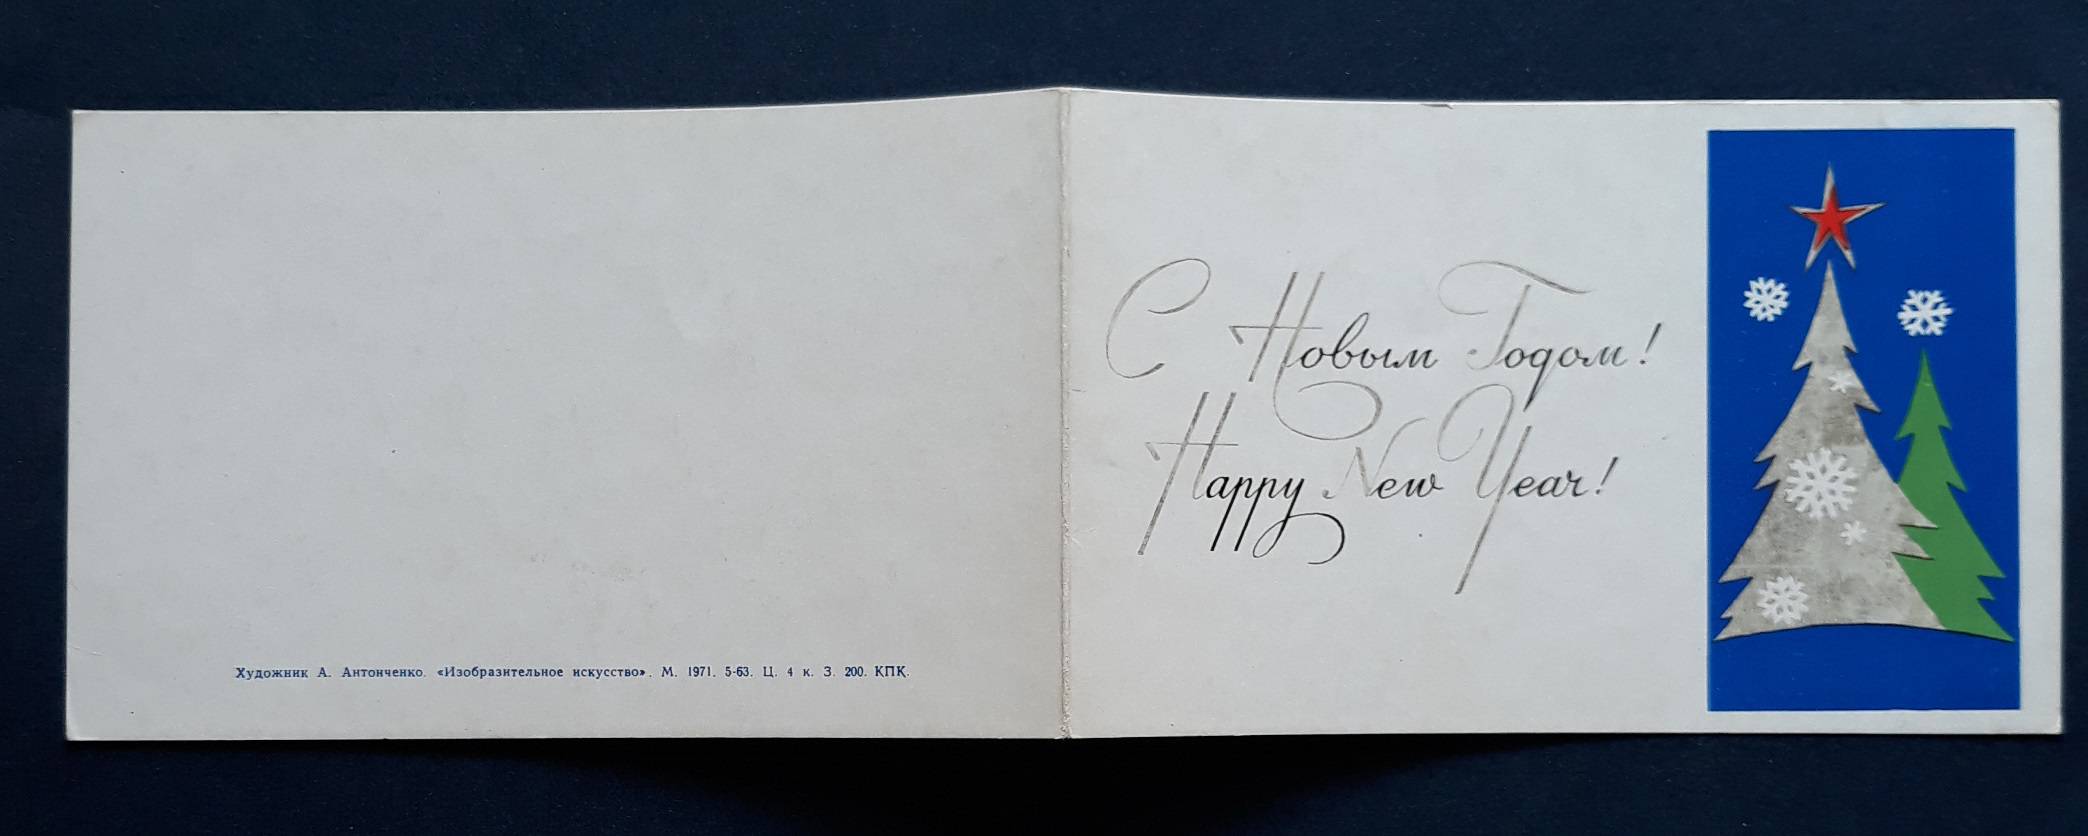 Художник А. Антонченко. «Изобразительное искусство». М. 1971. 5-63. Ц. 4 к. З. 200. КПК.
С Новым Годом!
Happy New Year!